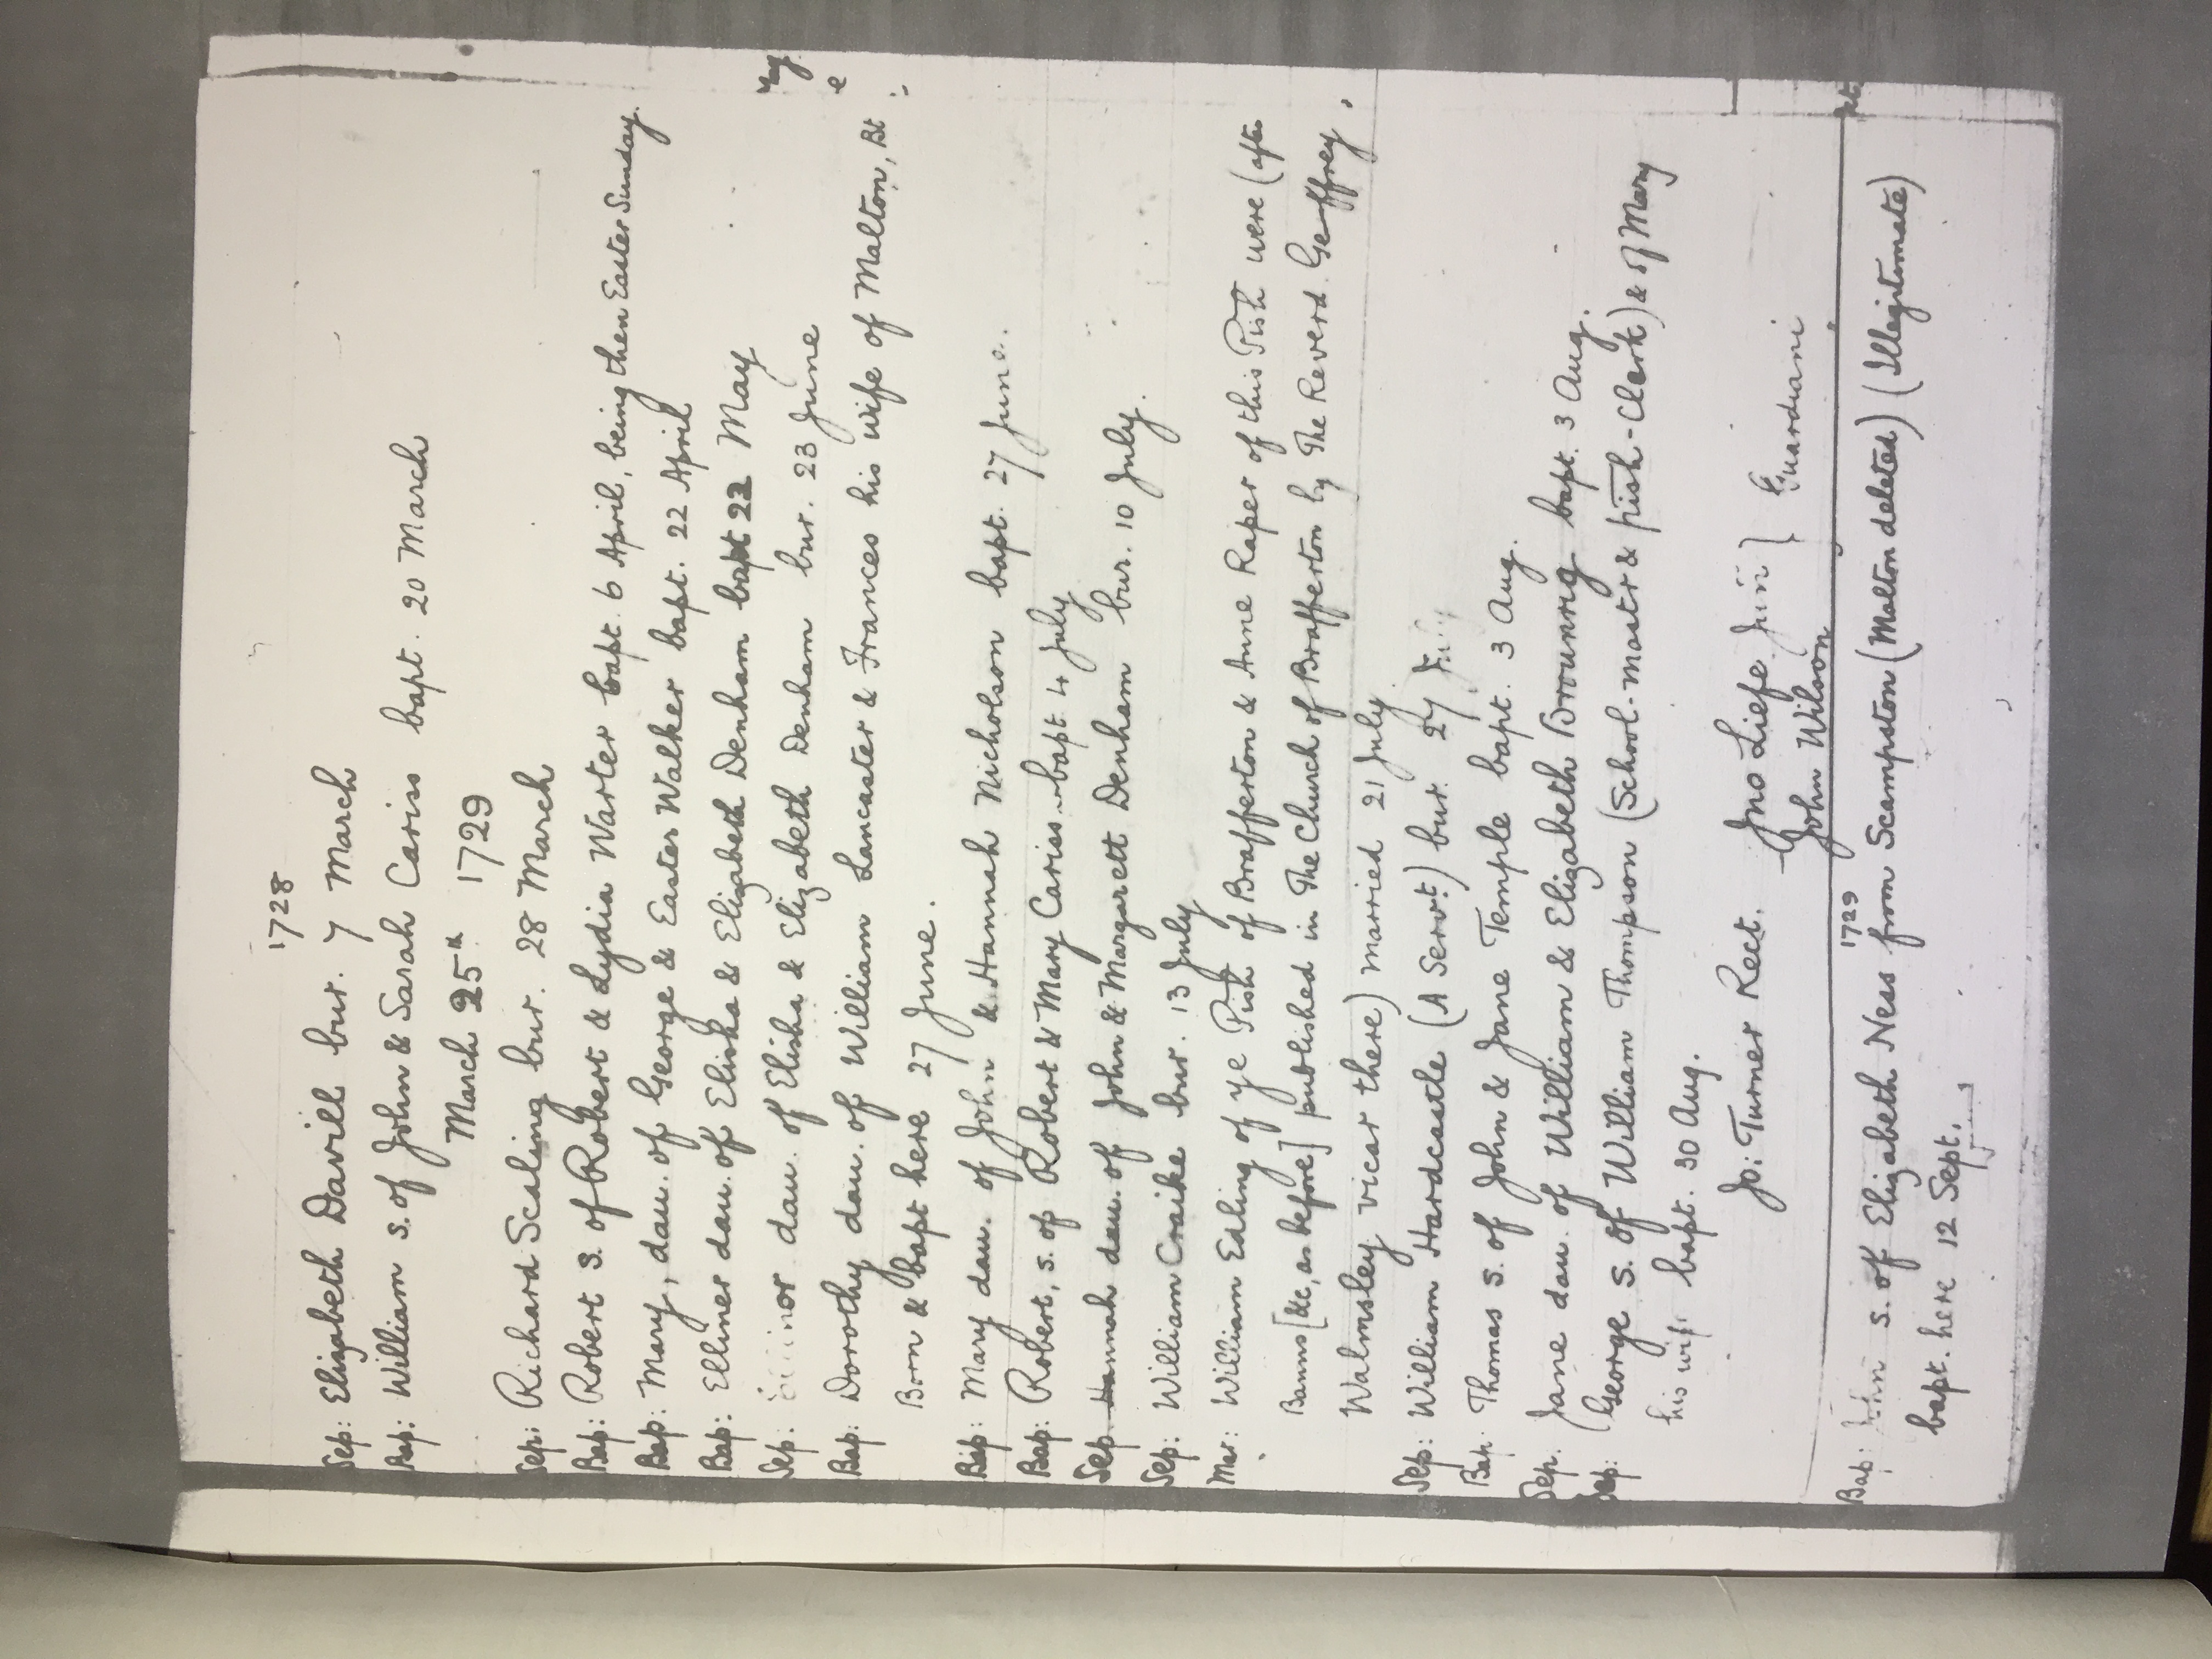 1728
Sep: Elizabeth Davill bur. 7 March
Bap: William s. of John & Sarah Cariss bapt. 20 March
March 25th 1729
Sep: Richard Scaling bur. 28 March
Bap: Robert s. of Robert & Lydia Warter bapt. 6 April, being then Easter Sunday.
Bap: Mary, dau. of George & Easter Walker bapt. 22 April
Bap: Elliner dau. of Elisha & Elizabeth Denham bapt 22 May
Sep: dau. of Elisha & Elizabeth Denham bur. 23 June
Bap: Dorothy dau. of William Lancaster & Frances his wife of Malton, Bt
Born & bapt here 27 June.
Bap: Mary dau. of John & Hannah Nicholson bapt. 27 June.
Bap: Robert, s. of Robert & Mary Cariss bapt. 4 July
Sep Hannah dau. of John & Margarett Denham bur. 10 July.
Sep: William Craike bur. 13 July
Mar: William Edling of ye Pish of Brafferton & Anne Raper of this Pish were (after
Banns [&c, as before] published in The Church of Brafferton by The Reverd. Geffrey
Walmsley vicar there) married 21 July.
Sep: William Hardcastle (A Servt.) bur. 27
Bap. Thomas s. of John & Jane Temple bapt. 3 Aug.
Sep. Jane dau. of William & Elizabeth Brounrig bapt. 3 Aug.
Sep: George s. of William Thompson (School-mastr & pish-Clerk) & of Mary
his wife bapt. 30 Aug.
Jo: Turner Rect. Jno Liefe Junr } Guardiani
John Wilson
1729
Bap: John s. of Elizabeth Ness from Scampston (Malton deleted) (Illegitimate)
bapt. here 12 Sept.